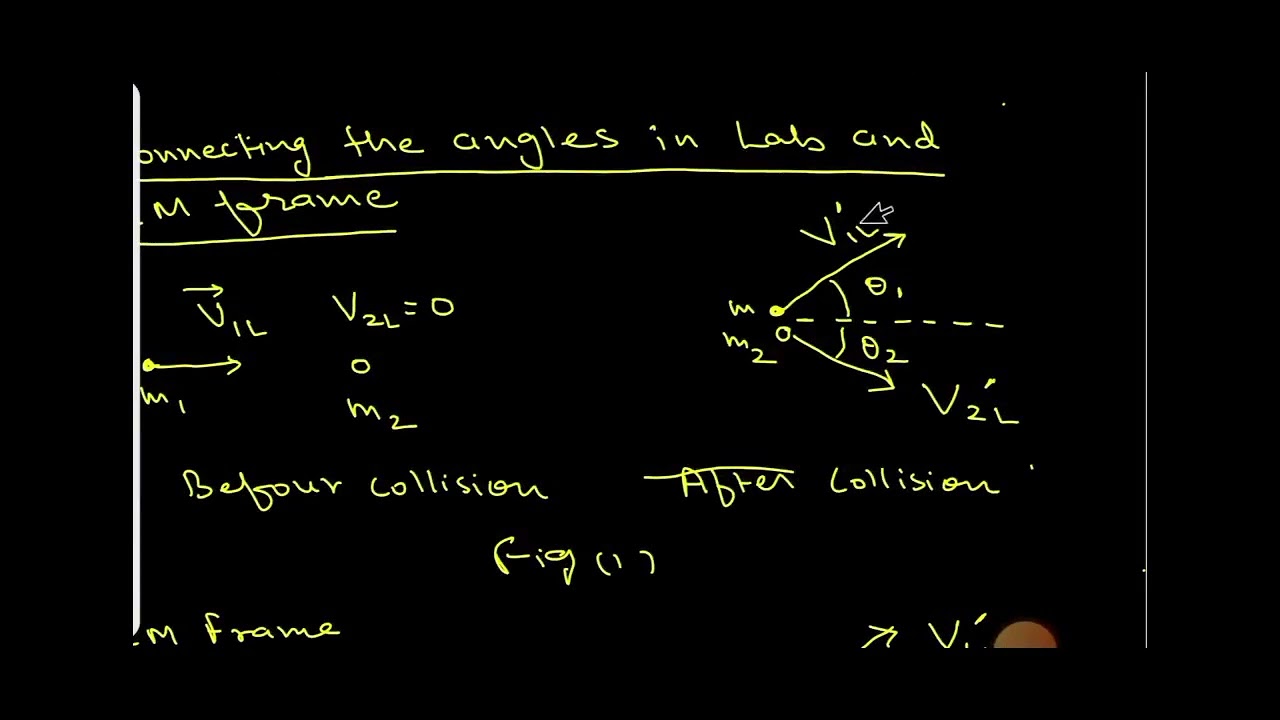 onnecting the angles in Lab and
M frame
V'1L
θ1
V1L V2L = 0
m
m2
θ2
m1 m2
V2'L
Befour collision After collision
Fig (1)
M Frame
V1'